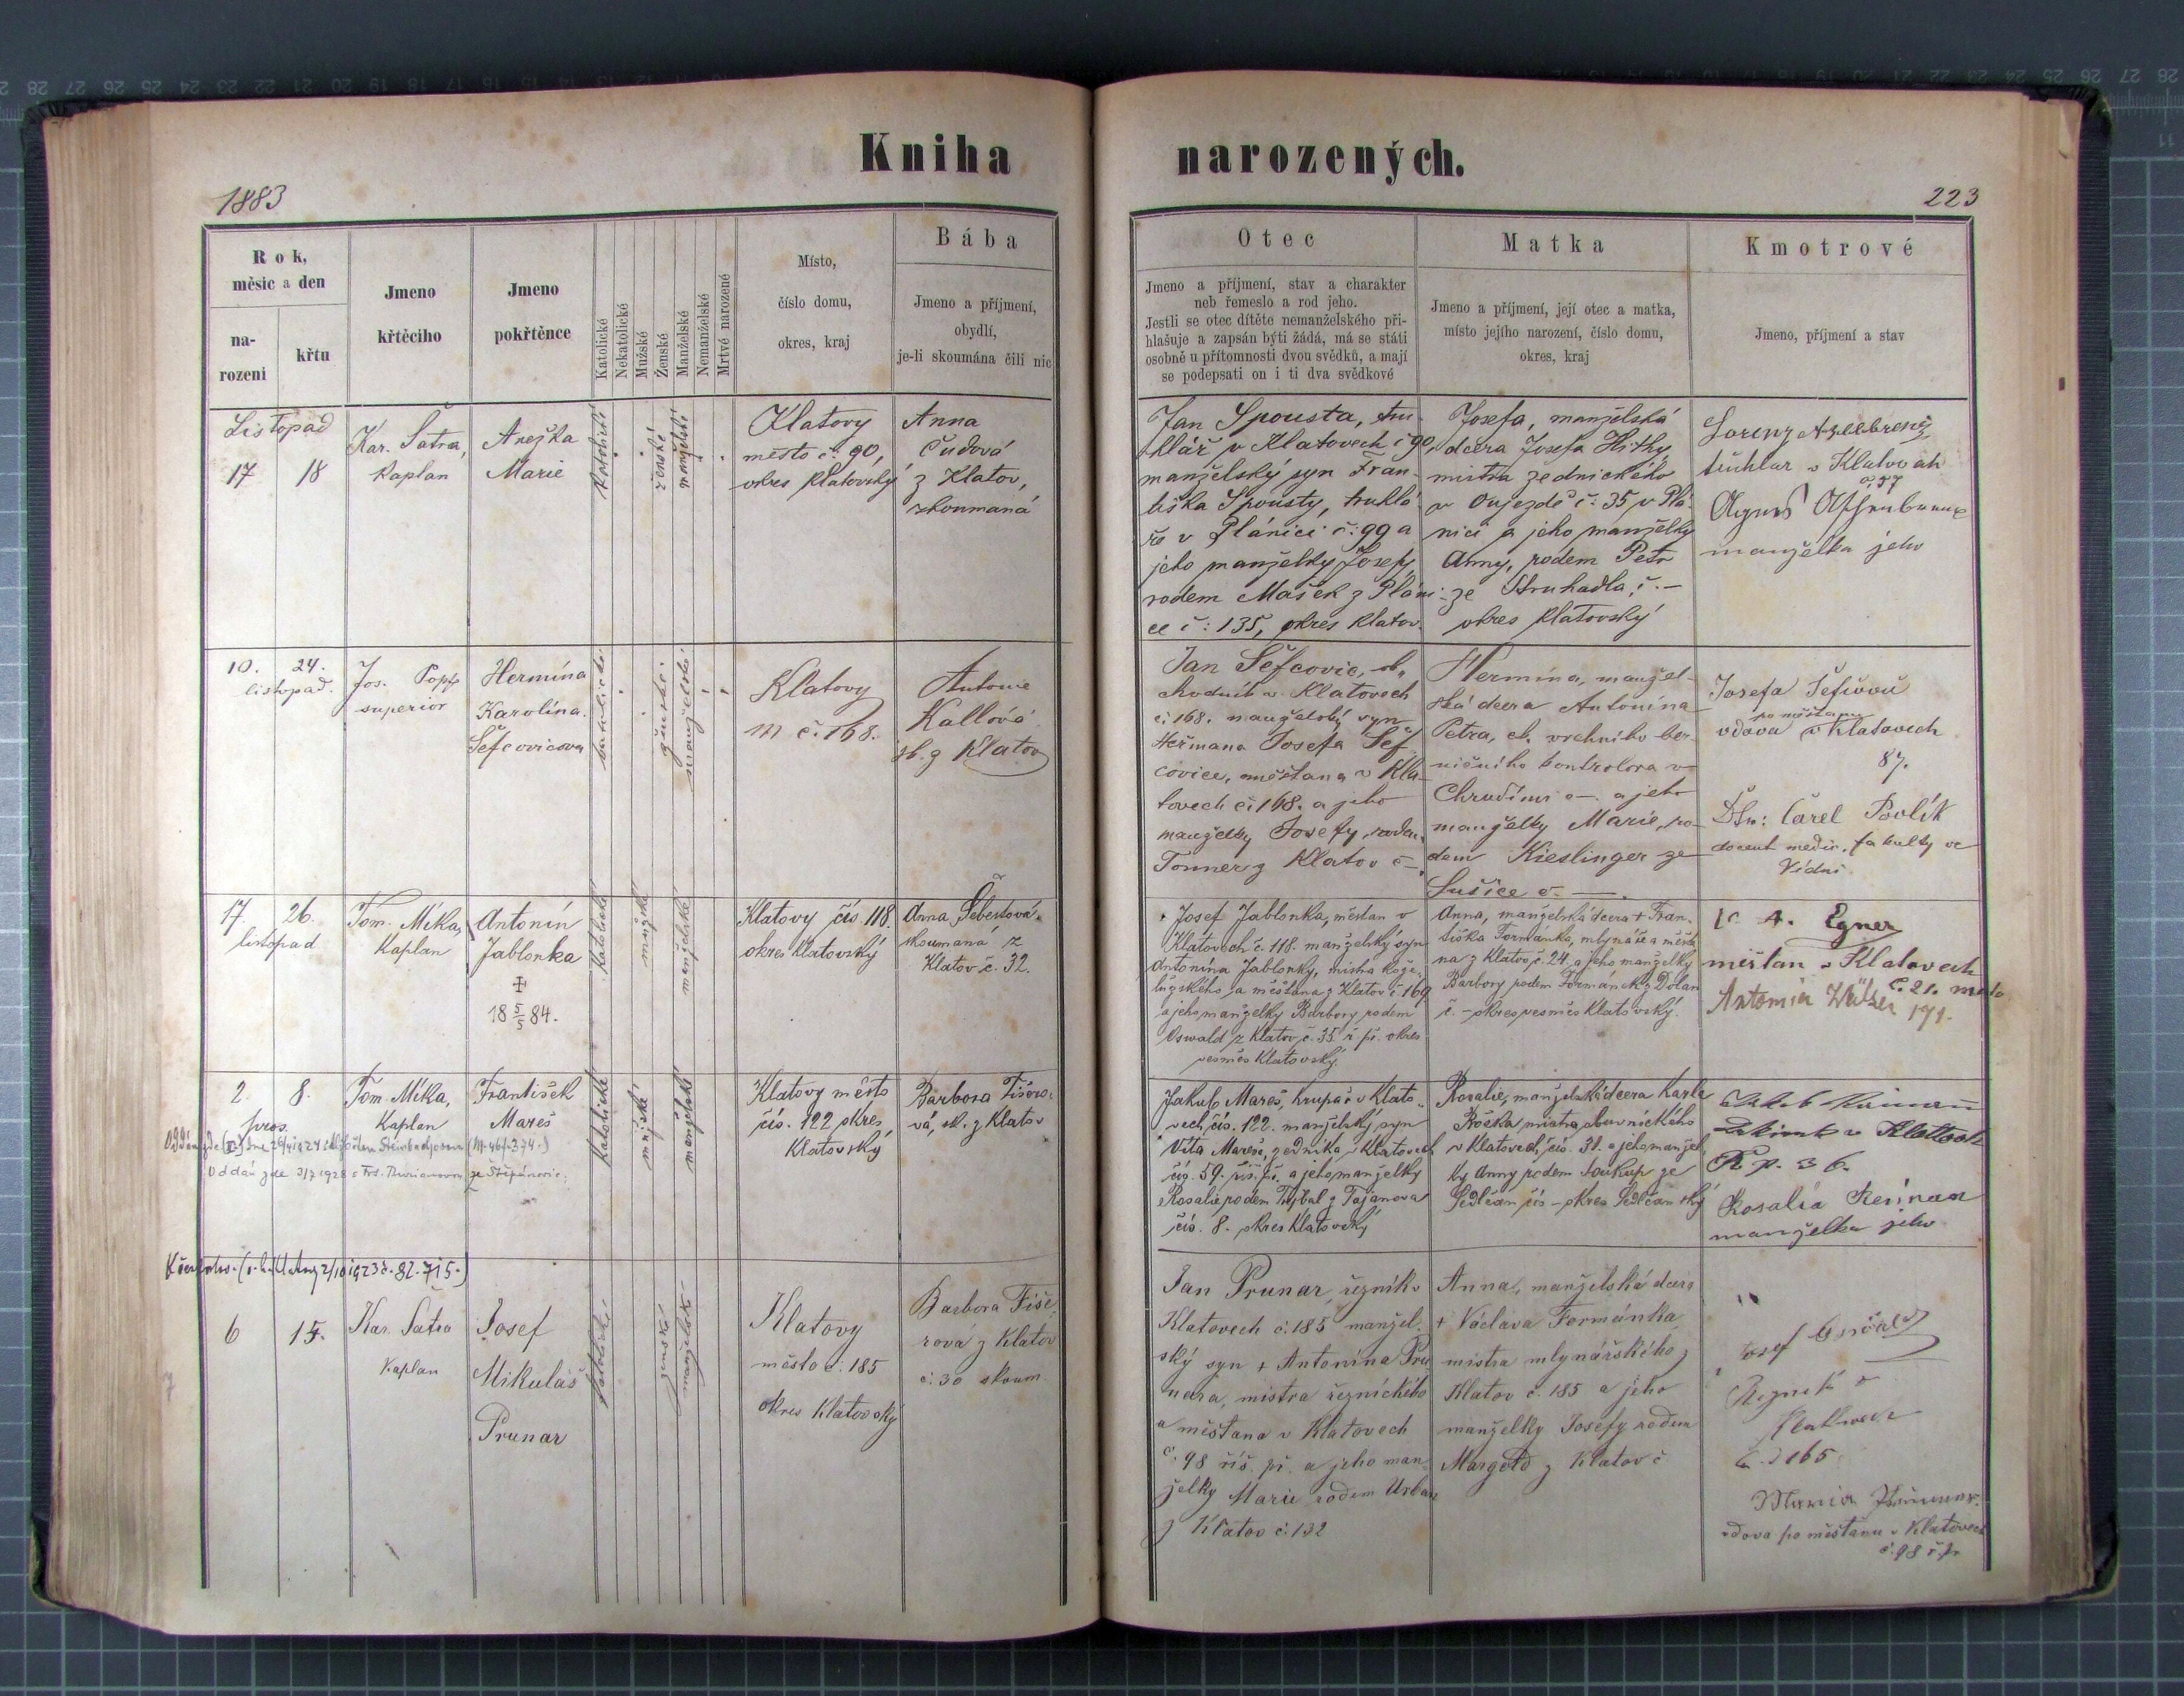 Kniha narozených.
1883
223
Rok,
měsíc a den
na-
rozeni
křtu
Jmeno
křtěcího
Jmeno
pokřtěnce
Katolické
Nekatolické
Mužské
Ženské
Manželské
Nemanželské
Mrtvé narozené
Místo,
číslo domu,
okres, kraj
Bába
Jmeno a příjmení,
obydlí,
je-li skoumána čili nic
Otec
Jmeno a příjmení, stav a charakter
neb řemeslo a rod jeho.
Jestli se otec dítěte nemanželského při-
hlašuje a zapsán býti žádá, má se státi
osobně u přítomnosti dvou svědků, a mají
se podepsati on i ti dva svědkové
Matka
Jmeno a příjmení, její otec a matka,
místo jejího narození, číslo domu,
okres, kraj
Kmotrové
Jmeno, příjmení a stav
Listopad
17 18
Kar. Šatra,
Kaplan
Anežka
Marie
katolické
ženské
manželské
Klatovy
město č: 90,
okres klatovský
Anna
Čudová
z Klatov,
zkoumaná
Jan Spousta, tru-
hlář v Klatovech č 90,
manželský syn Fran-
tiška Spousty, truhlá-
ře v Plánici č: 99 a
jeho manželky Josefy
rodem Mašek z Pláni-
ce č: 135, okres klatov.
Josefa, manželská
dcera Josefa Hitky,
mistra zednického
v Oujezdě č: 35 v Plá-
nici a jeho manželky
Anny, rodem Petr
ze Struhadla, č. –
okres klatovský
Lorenz
truhlar v Klatovah
č. 57
Agnes
manželka jeho
10. 24.
listopad.
Jos. Popp
superior
Hermína
Karolína
Šefcovicova
katolické
ženské
manželské
Klatovy
m č. 168.
Antonie
Kallová
sk. z Klatov
Jan Šefcovic, ob-
chodník v Klatovech
č: 168. manželský syn
Heřmana Josefa Šef-
covice, měšťana v Kla-
tovech č: 168. a jeho
manželky Josefy, rodem
Tonner z Klatov č –.
Hermína, manžel-
ská dcera Antonína
Petra, c.k. vrchního ber-
ničního kontrolora v
Chrudimi č –. a jeho
manželky Marie, ro-
dem Kieslinger ze
Sušice č. –.
Josefa
po měšťanu
vdova v Klatovech
87.
Karel
docent medic. fakulty ve
Vídni
17. 26.
listopad
Tom. Míka,
Kaplan
Antonín
Jablonka
✝
18 5/5 84.
katolické
mužské
manželské
Klatovy čís 118.
okres klatovský
Anna Šebestová.
skoumaná z
Klatov č. 32.
Josef Jablonka, měšťan v
Klatovech č. 118. manželský syn
Antonína Jablonky, mistra kože-
lužského a měšťana z Klatov č 169
a jeho manželky Barbory rodem
Oswald z Klatov č. 35 ř. př. okres
vesměs Klatovský.
Anna, manželská dcera + Fran-
tiška Formánka, mlynáře a měšťa-
na z Klatov č. 24 a jeho manželky
Barbory rodem Formánek z Dolan
č. – okres vesměs klatovský.
Egner
měšťan v Klatovech
č. 21. město
Antonia
171.
2. 8.
pros.
Tom. Míka,
Kaplan
František
Mareš
katolické
mužské
manželské
Klatovy město
čís. 122 okres
Klatovský
Barbora Fišero-
vá, sk. z Klatov
Jakub Mareš, krupař v Klato-
vech, čís. 122. manželský syn
Víta Mareše, zedníka v Klatovech
čís. 59. říš. př. a jeho manželky
Rosalie rodem Trýbal z Tajanova
čís. 8. okres Klatovský
Rosalie, manželská dcera Karla
Ročka mistra obuvnického
v Klatovech, čís. 31. a jeho manžel-
ky Anny rodem Soukup ze
Sedlčan čís – okres Sedlčanský
Jakub
v Klattoch
36.
Rosalia
manželka jeho
6 15.
Kar. Šatra
Kaplan
Josef
Mikuláš
Prunar
katolické
ženské
manželské
Klatovy
město č. 185
okres Klatovský
Barbora Fiše-
rová z Klatov
č. 30 skoum.
Jan Prunar, řezník v
Klatovech č. 185 manžel-
ský syn + Antonína Pru-
nara, mistra řeznického
a měšťana v Klatovech
č. 98 říš. př. a jeho man-
želky Marie rodem Urban
z Klatov č. 132
Anna, manželská dcera
+ Václava Formánka,
mistra mlynářského z
Klatov č. 185 a jeho
manželky Josefy rodem
Margold z Klatov č
Josef
Řezník v
165
Maria
vdova po měšťanu v Klatovech
č. 98 ř. p.